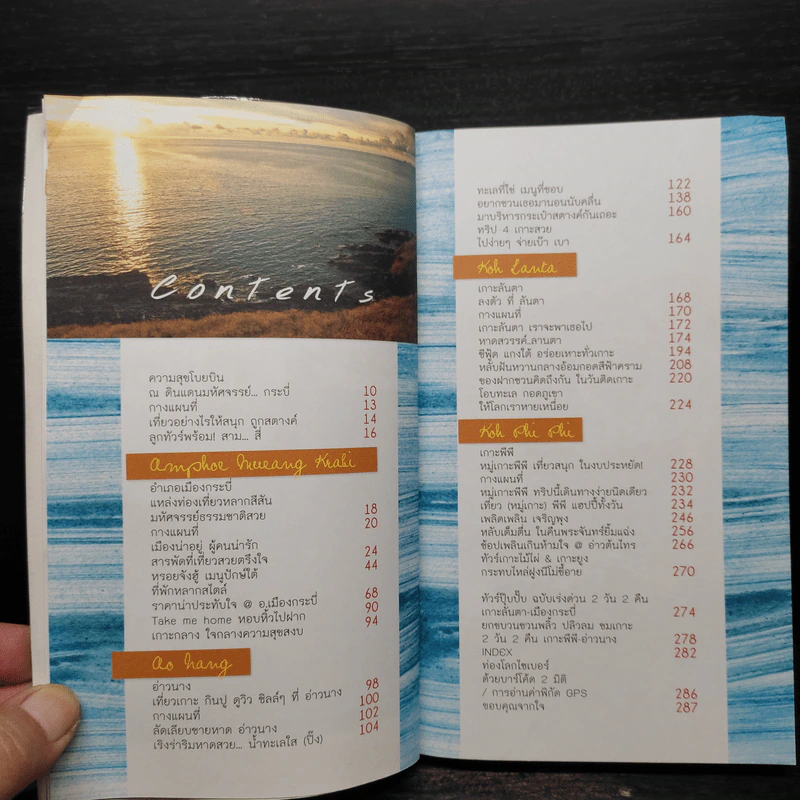 Contents
ความสุขโบยบิน
ณ ดินแดนมหัศจรรย์... กระบี่ 10
กางแผนที่ 13
เที่ยวอย่างไรให้สนุก ถูกสตางค์ 14
ลูกทัวร์พร้อม! สาม... สี่ 16
Amphoe Mueang Krabi
อำเภอเมืองกระบี่
แหล่งท่องเที่ยวหลากสีสัน
มหัศจรรย์ธรรมชาติสวย 18
กางแผนที่ 20
เมืองน่าอยู่ ผู้คนน่ารัก
สารพัดที่เที่ยวสวยตรึงใจ 24
หรอยจังฮู้ เมนูปักษ์ใต้ 44
ที่พักหลากสไตล์
ราคาน่าประทับใจ @ อ.เมืองกระบี่ 68
Take me home หอบหิ้วไปฝาก 90
เกาะกลาง ใจกลางความสุขสงบ 94
Ao Nang
อ่าวนาง 98
เที่ยวเกาะ กินปู ดูวิว ชิลล์ๆ ที่ อ่าวนาง 100
กางแผนที่ 102
ลัดเลียบชายหาด อ่าวนาง 104
เริงร่าริมหาดสวย... น้ำทะเลใส (ปิ๊ง)
ทะเลที่ใช่ เมนูที่ชอบ 122
อยากชวนเธอมานอนนับคลื่น 138
มาบริหารกระเป๋าสตางค์กันเถอะ 160
ทริป 4 เกาะสวย
ไปง่ายๆ จ่ายเบ๊า เบา 164
Koh Lanta
เกาะลันตา
ลงตัว ที่ ลันตา 168
กางแผนที่ 170
เกาะลันตา เราจะพาเธอไป 172
หาดสวรรค์..ลานตา 174
ซีฟู้ด แกงใต้ อร่อยเหาะทั่วเกาะ 194
หลับฝันหวานกลางอ้อมกอดสีฟ้าคราม 208
ของฝากชวนคิดถึงกัน ในวันติดเกาะ 220
โอบทะเล กอดภูเขา
ให้โลกเราหายเหนื่อย 224
Koh Phi Phi
เกาะพีพี
หมู่เกาะพีพี เที่ยวสนุก ในงบประหยัด! 228
กางแผนที่ 230
หมู่เกาะพีพี ทริปนี้เดินทางง่ายนิดเดียว 232
เที่ยว (หมู่เกาะ) พีพี แฮปปี้ทั้งวัน 234
เพลิดเพลิน เจริญพุง 246
หลับเต็มตื่น ในคืนพระจันทร์ยิ้มแฉ่ง 256
ช้อปเพลินเกินห้ามใจ @ อ่าวต้นไทร 266
ทัวร์เกาะไม้ไผ่ & เกาะยูง
กระทบไหล่ฝูงนีโมขี้อาย 270
ทัวร์ปุ๊บปั๊บ ฉบับเร่งด่วน 2 วัน 2 คืน
เกาะลันตา-เมืองกระบี่ 274
ยกขบวนชวนพลิ้ว ปลิวลม ชมเกาะ
2 วัน 2 คืน เกาะพีพี-อ่าวนาง 278
INDEX 282
ท่องโลกไซเบอร์
ด้วยบาร์โค้ด 2 มิติ
/ การอ่านค่าพิกัด GPS 286
ขอบคุณจากใจ 287